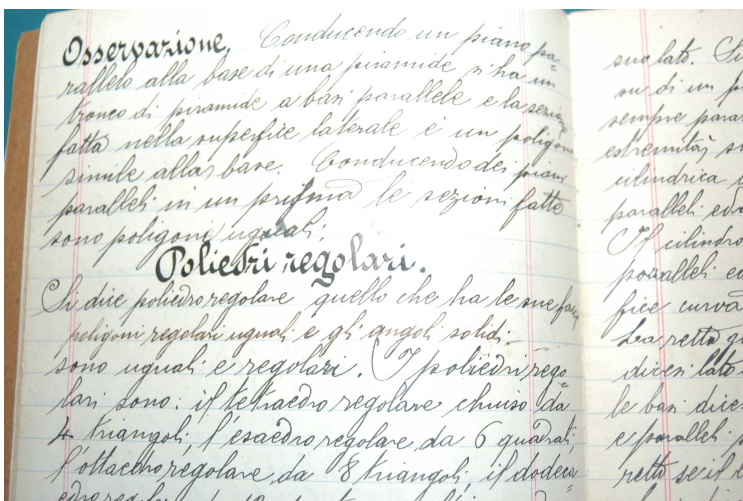 Osservazione, Conducendo un piano pa=
rallelo alla base di una piramide si ha un
tronco di piramide a basi parallele e la sezione
fatta nella superfice laterale è un poligono
simile alla base. Conducendo dei piani
paralleli in un prisma le sezioni fatte
sono poligoni uguali.
Poliedri regolari.
Si dice poliedro regolare quello che ha le sue facce
poligoni regolari uguali e gli angoli solidi
sono uguali e regolari. I poliedri rego=
lari sono: il tetraedro regolare chiuso da
4 triangoli, l'esaedro regolare, da 6 quadrati
l'ottaedro regolare da 8 triangoli, il dodeca
edro regolare
suo lato. Si
su di un
sempre para
estremità, su
cilindrica
paralleli ed
Il cilindro
paralleli e
fice curva
La retta
dicesi lato
le basi dice
e paralleli.
retto se il